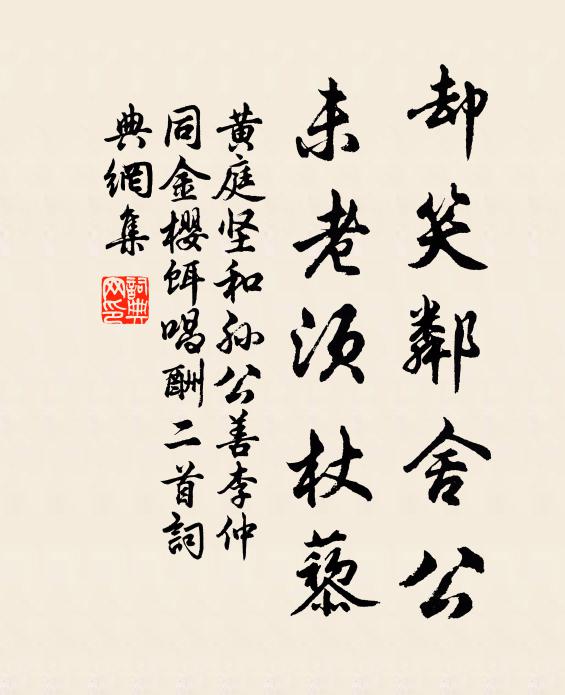 却笑鄰舍公
未老須杖藜
黄庭坚和孙公善李仲
同金櫻餌唱酬二首詞
典網集
詞典網印